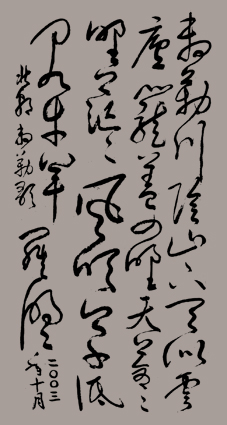 敕勒川陰山下天似穹
廬籠蓋四野天蒼〻
野茫〻風吹草低
見牛羊
北朝敕勒歌
羅
二〇〇三
年十月